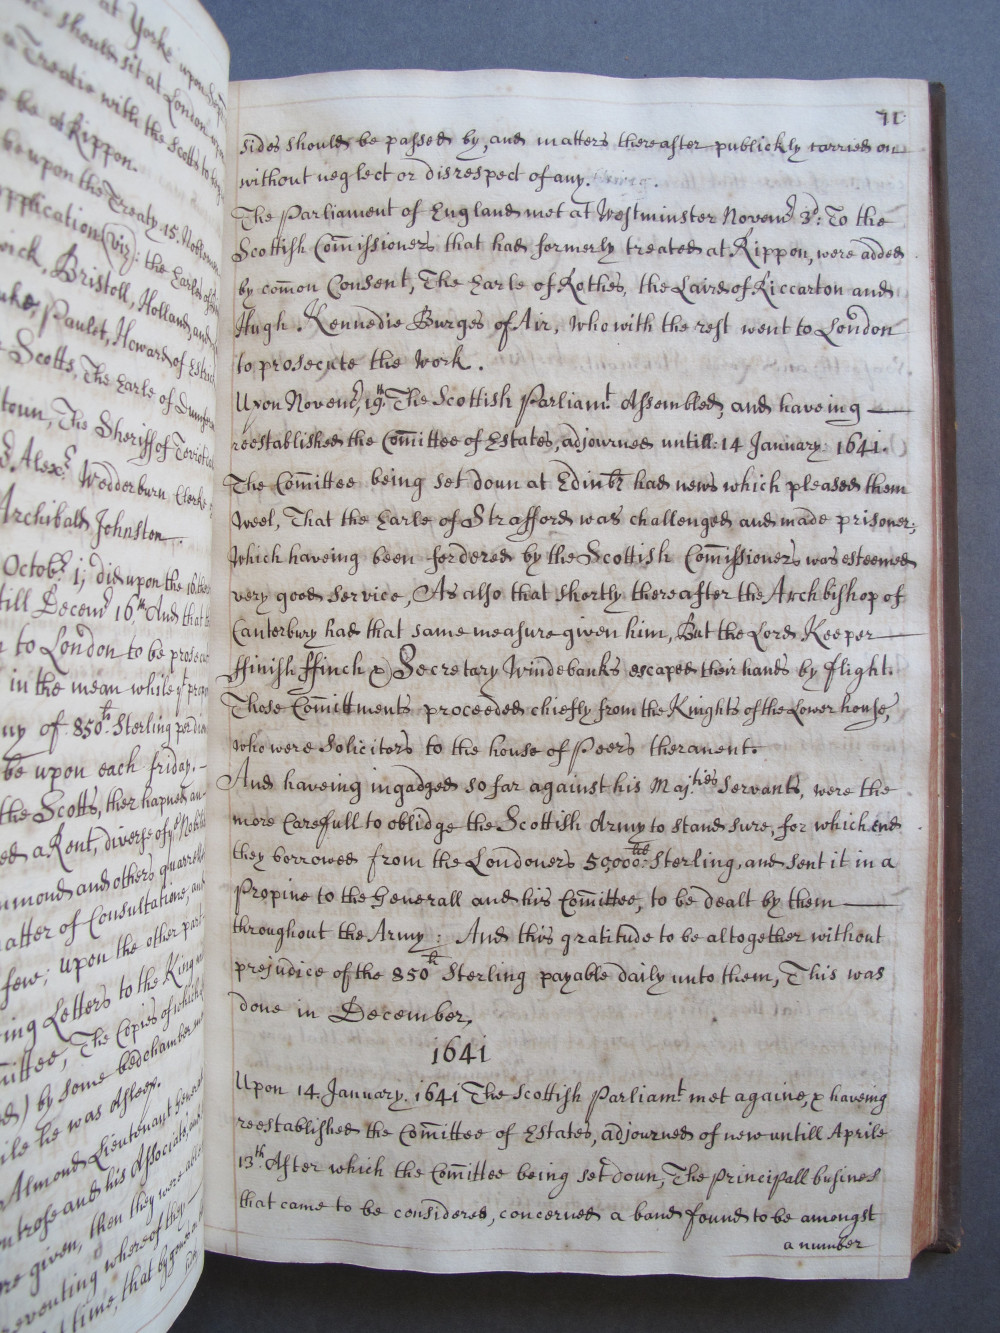 at Yorke upon
should sit at London
a Treatie with the Scotts to
be at Rippon.
be upon the Treaty 15. Noblemen
application (viz): the Earles of
wick, Bristoll, Holland, and
Paulet, Howard of
Scotts, The Earle of
toun, The Sheriff of
Alexr. Wedderburn Clerke
Archibald Johnston
Octobr. 1; did upon the 16. th
till Decemr 16th And that
to London to be
in the mean while yt
ny of 850th Sterling per
be upon each friday.
the Scotts, ther hapned an
ed a Rent, diverse of ye
mmond and others
atter of Consultatione, and
few; upon the other part
ing Letters to the King
mittee, The Copies of which
by some bedchamber
ile he was asleep.
Almond Lieutenant
ntrose and his Associate
re given, then they were
reventing whereof they
time, that by
71
sides should be passed by, and matters thereafter publickly carried on
without neglect or disrespect of any.
The Parliament of England met at Westminster Novemr 3d: To the
Scottish Com̄issioners that had formerly treated at Rippon, were added
by com̄on Consent, The Earle of Rothes, the Laird of Riccarton and
Hugh Kennedie Burges of Air, who with the rest went to London
to prosecute the work.
Upon Novemr, 19th. The Scottish Parliamt. Assembled, and haveing
reestablished the Com̄ittee of Estates, adjourned untill 14 January 1641.
The Com̄ittee being set doun at Edinbr had news which pleased them
weel, That the Earle of Strafford was challenged and made prisoner;
Which haveing been fordered by the Scottish Com̄issioners was esteemed
very good service, As also that shortly thereafter the Archbishop of
Canterbury had that same measure given him, But the Lord Keeper
ffinish ffinch &) Secretary Windebanks escaped their hands by flight.
Those Com̄ittments proceeded chiefly from the Knights of the Lower house,
who were Solicitors to the house of Peers theranent.
And haveing ingadged so far against his Maj:ties Servants, were the
more Carefull to oblidge the Scottish Army to stand sure, for which end
they borrowed from the Londoners 50,000: lib Sterling, and sent it in a
Propine to the Generall and his Com̄ittee, to be dealt by them
throughout the Army: And this gratitude to be altogether without
prejudice of the 850th Sterling payable daily unto them, This was
done in December.
1641
Upon 14 January. 1641 The Scottish Parliamt met againe, & haveing
reestablished the Com̄ittee of Estates, adjourned of new untill Aprile
13th. After which the Com̄ittee being set doun, The Principall busines
that came to be considered, concerned a band found to be amongst
a number